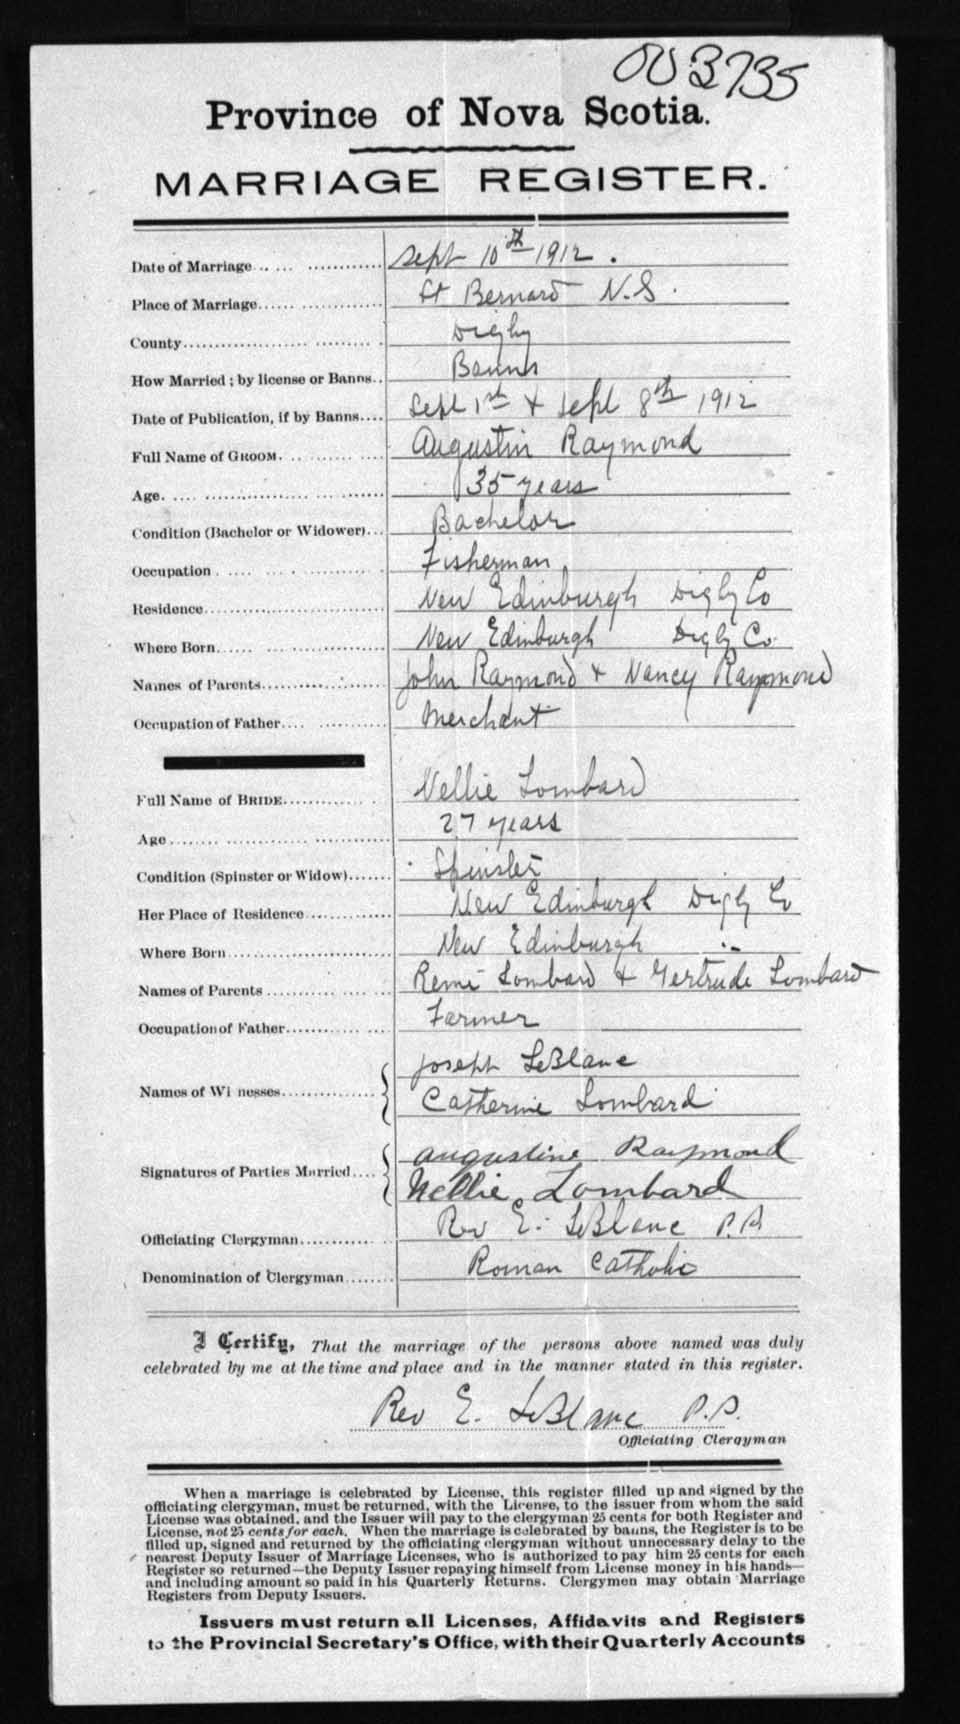 003735
Province of Nova Scotia.
MARRIAGE REGISTER.
Date of Marriage Sept 10th 1912.
Place of Marriage St Bernard N.S.
County Digby
How Married; by license or Banns.. Banns
Date of Publication, if by Banns.... Sept 1st + Sept 8th 1912
Full Name of GROOM. Augustin Raymond
Age. 35 years
Condition (Bachelor or Widower)... Bachelor
Occupation Fisherman
Residence New Edinburgh Digby Co
Where Born New Edinburgh Digby Co.
Names of Parents John Raymond + Nancy Raymond
Occupation of Father.... Merchant
Full Name of BRIDE Nellie Lombard
Age 27 years
Condition (Spinster or Widow) Spinster
Her Place of Residence New Edinburgh Digby Co
Where Born New Edinburgh "
Names of Parents Remi Lombard + Gertrude Lombard
Occupation of Father Farmer
Joseph LeBlanc
Names of Wi nesses
Catherine Lombard
Augustine Raymond
Signatures of Parties Married....
Nellie Lombard
Officiating Clergyman Rev E. LeBlanc P.P.
Denomination of Clergyman Roman Catholic
I Certify, That the marriage of the persons above named was duly
celebrated by me at the time and place and in the manner stated in this register.
Rev E. LeBlanc P.P.
Officiating Clergyman
When a marriage is celebrated by License, this register filled up and signed by the
officiating clergyman, must be returned, with the License, to the issuer from whom the said
License was obtained, and the Issuer will pay to the clergyman 25 cents for both Register and
License, not 25 cents for each. When the marriage is celebrated by banns, the Register is to be
filled up, signed and returned by the officiating clergyman without unnecessary delay to the
nearest Deputy Issuer of Marriage Licenses, who is authorized to pay him 25 cents for each
Register so returned—the Deputy Issuer repaying himself from License money in his hands—
and including amount so paid in his Quarterly Returns. Clergymen may obtain Marriage
Registers from Deputy Issuers.
Issuers must return all Licenses, Affidavits and Registers
to the Provincial Secretary's Office, with their Quarterly Accounts